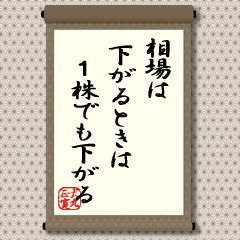 相場は
下がるときは
１株でも下がる